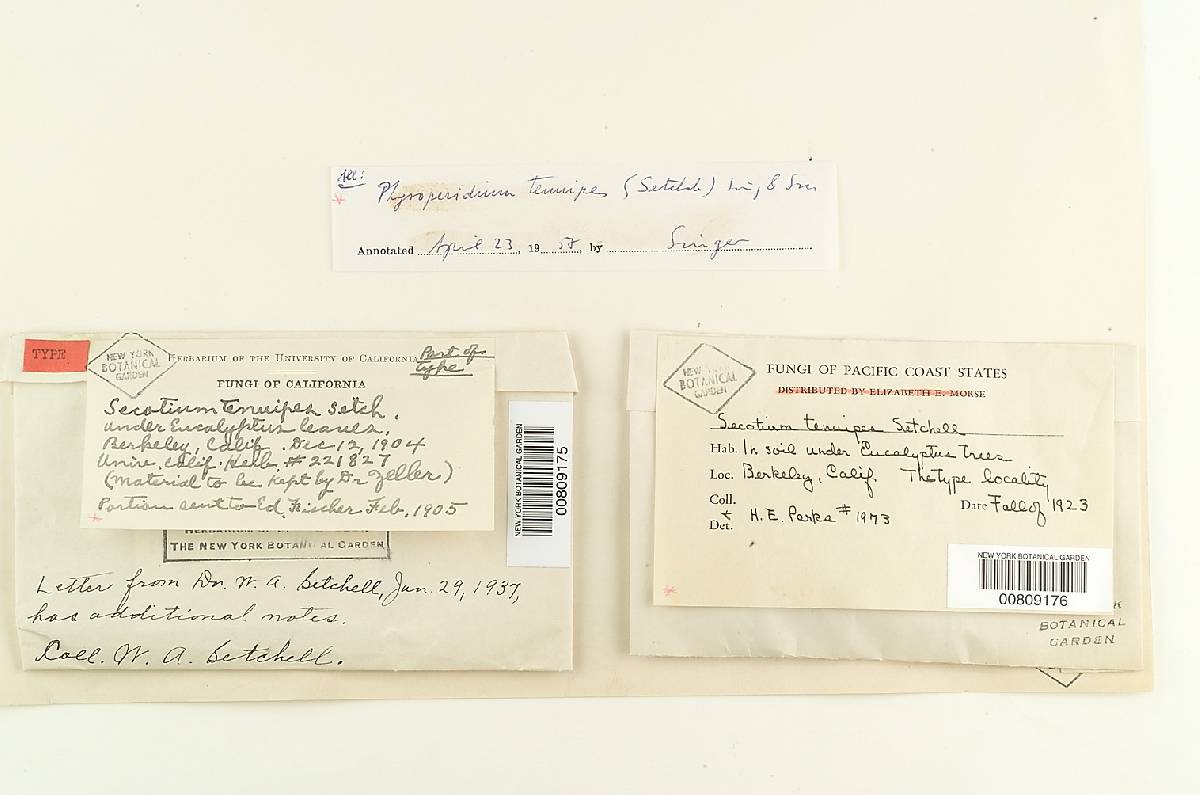 All:
tenuipes (Setchell) & Sm
Annotated April 23, 19 58, by Singer
TYPE
NEW YORK
BOTANICAL
GARDEN
HERBARIUM OF THE UNIVERSITY OF CALIFORNIA
Part of
type
FUNGI OF CALIFORNIA
Secotium tenuipes Setch.
under Eucalyptus leaves,
Berkeley, Calif. Dec 12, 1904
Univ. Calif. Herb. #221827
(Material to be kept by Dr Zeller)
Portion sent to Ed. Fischer Feb, 1905
THE NEW YORK BOTANICAL GARDEN
Letter from Dr. W. A. Setchell, Jan. 29, 1937,
has additional notes.
Coll. W. A. Setchell.
NEW YORK BOTANICAL GARDEN
00809175
NEW YORK
BOTANICAL
GARDEN
FUNGI OF PACIFIC COAST STATES
DISTRIBUTED BY ELIZABETH E. MORSE
Secotium tenuipes Setchell
Hab. In soil under Eucalyptus trees
Loc. Berkeley, Calif. The type locality
Coll. & Det. H. E. Parks # 1973
Date Fall of 1923
NEW YORK BOTANICAL GARDEN
00809176
BOTANICAL
GARDEN